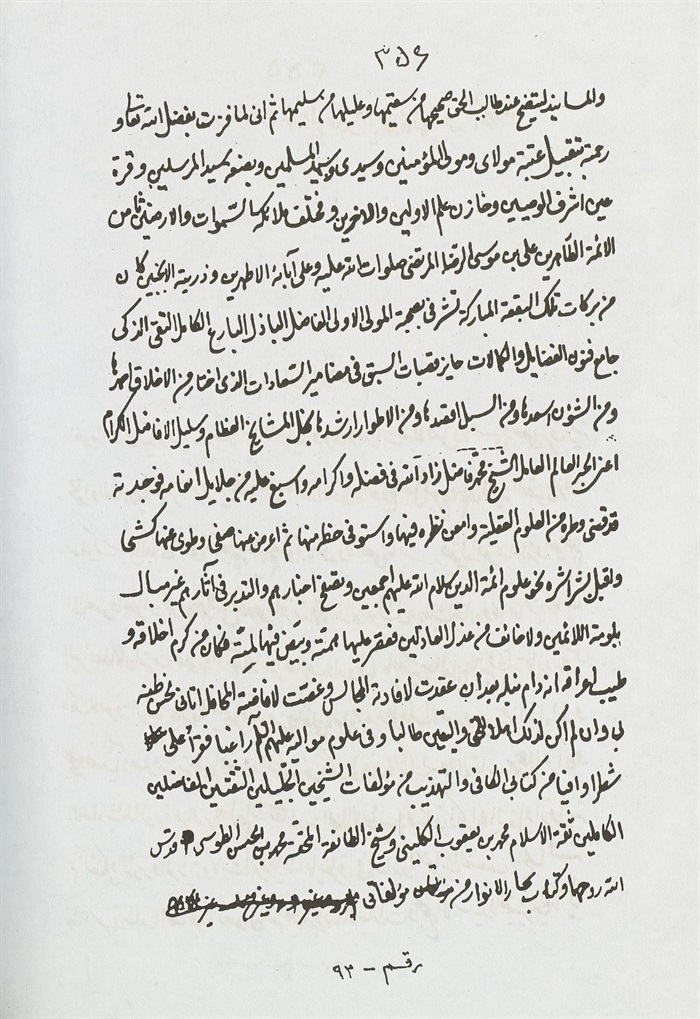 ٣٥٦
والمسانيد ليتضح عند طالب الحق صحيحها من سقيمها وعليلها من سليمها ثم انى لما فزت بفضل الله تعالى و
رحمته بتقبيل عتبة مولاى ومولى المؤمنين وسيدى وسيد المسلمين وبضعة سيد المرسلين وقرة
عين اشرف الوصيين وخازن علم الاولين والاخرين ومختلف ملائكة السموات والارضين ثامن
الائمة الطاهرين على بن موسى الرضا المرتضى صلوات الله عليه وعلى آبائه الاطهرين وذريته الانجبين كان
من بركات تلك البقعة المباركة تشرفى بصحبة المولى الاولى الفاضل الباذل البارع الكامل التقى الذكى
جامع فنون الفضايل والكمالات حايز قصبات السبق فى مضامير السعادات الذى اختار من الاخلاق احمدها
ومن الشؤن اسعدها ومن السبل اقصدها ومن الاطوار ارشدها نجل المشايخ العظام وسليل الافاضل الكرام
اعنى الحبر العالم العامل الشيخ محمد فاضل زاد الله فى فضله واكرامه واسبغ عليه من جلايل انعامه فوجدته
قد قضى وطره من العلوم العقلية وامعن نظره فيها واستوفى حظه منها ثم اعرض عنها صفحا وطوى عنها كشحا
واقبل بشراشره نحو علوم ائمة الدين سلام الله عليهم اجمعين وتصفح اخبارهم والتدبر فى آثارهم غير مبال
بلومة اللائمين ولا خائف من عذل العاذلين فقصر عليها همته وبيض فيها لمته فكان من كرم اخلاقه و
طيب اعراقه انه دام نبله بعد ان عقدت لافادته المجالس وغصت لافاضته المحافل اتانى لحسن ظنه
بى وان لم اكن لذلك اهلا للحق واليقين طالبا وفى علوم مواليه عليهم السلام راغبا فقرأ على
شطرا وافيا من كتابى الكافى والتهذيب من مؤلفات الشيخين الجليلين الثقتين الفاضلين
الكاملين ثقة الاسلام محمد بن يعقوب الكلينى وشيخ الطائفة المحقة محمد بن الحسن الطوسى قدس
الله روحهما وكتاب بحار الانوار من مؤلفاتى
رقم - ٩٣